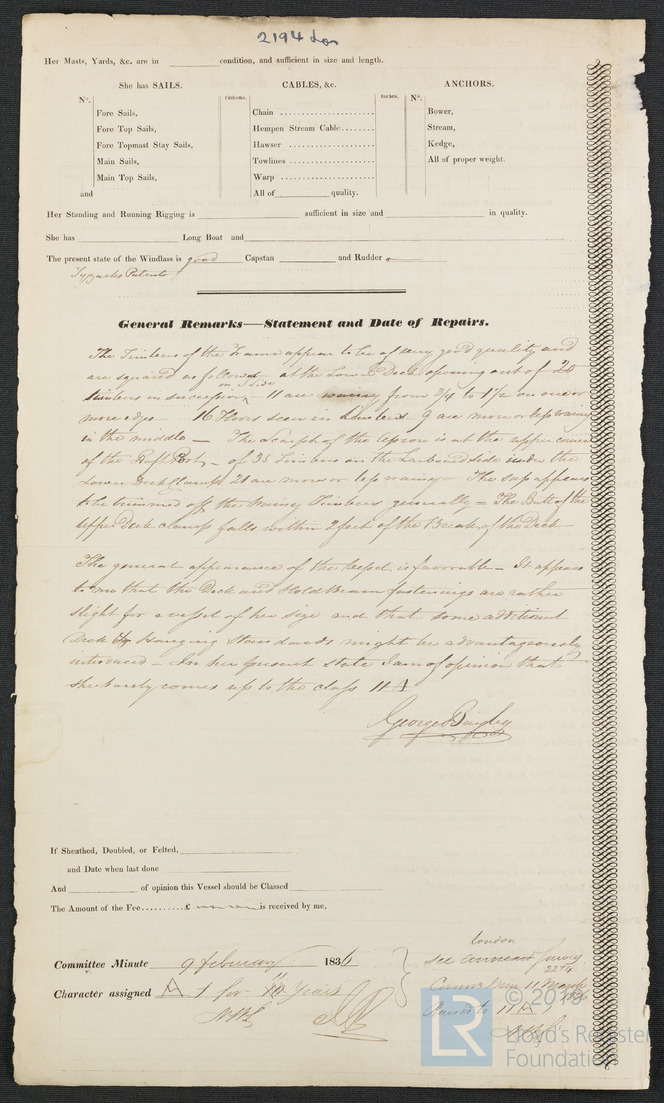 2194 Lon
Her Masts, Yards, &c. are in condition, and sufficient in size and length.
She has SAILS.
CABLES, &c.
ANCHORS.
N°.
Fathoms.
Inches.
N°.
Fore Sails,
Chain
Bower,
Fore Top Sails,
Hempen Stream Cable
Stream,
Fore Topmast Stay Sails,
Hawser
Kedge,
Main Sails,
Towlines
All of proper weight.
Main Top Sails,
Warp
and
All of quality.
Her Standing and Running Rigging is sufficient in size and in quality.
She has Long Boat and
The present state of the Windlass is good Capstan and Rudder
Patent
General Remarks—Statement and Date of Repairs.
The Timbers of the Frame appear to be of very good quality and
are squared as follows at the Lower Deck opening out of 20
on S side
timbers in succession 11 are waney from 3/4 to 1 1/2 on one or
more edge — 16 Floors seen in Limbers 9 are more or less waney
in the middle — The Scarph of the is at the upper corner
of the Raft Port — of 35 Timbers on the Larboard side under the
Lower Deck Clamp 21 are more or less waney — The sap appears
to be trimmed off the waney Timbers generally = The Butt of the
upper Deck clamp falls within 2 feet of the Break of the Deck
The general appearance of the Vessel is favorable — It appears
to me that the Deck and Hold Beam fastenings are rather
slight for a vessel of her size and that some additional
Deck Hanging Standards might be advantageously
introduced — In her present state I am of opinion that
she barely comes up to the class 11 A
George Bayley
If Sheathed, Doubled, or Felted,
and Date when last done
And of opinion this Vessel should be Classed
The Amount of the Fee £ is received by me,
Committee Minute 9 February 1836
Character assigned A 1 for Years
London
See Survey
2274
11 March
1836
Raised to 11 A 1
LR
© 2019
Lloyd's Register
Foundation